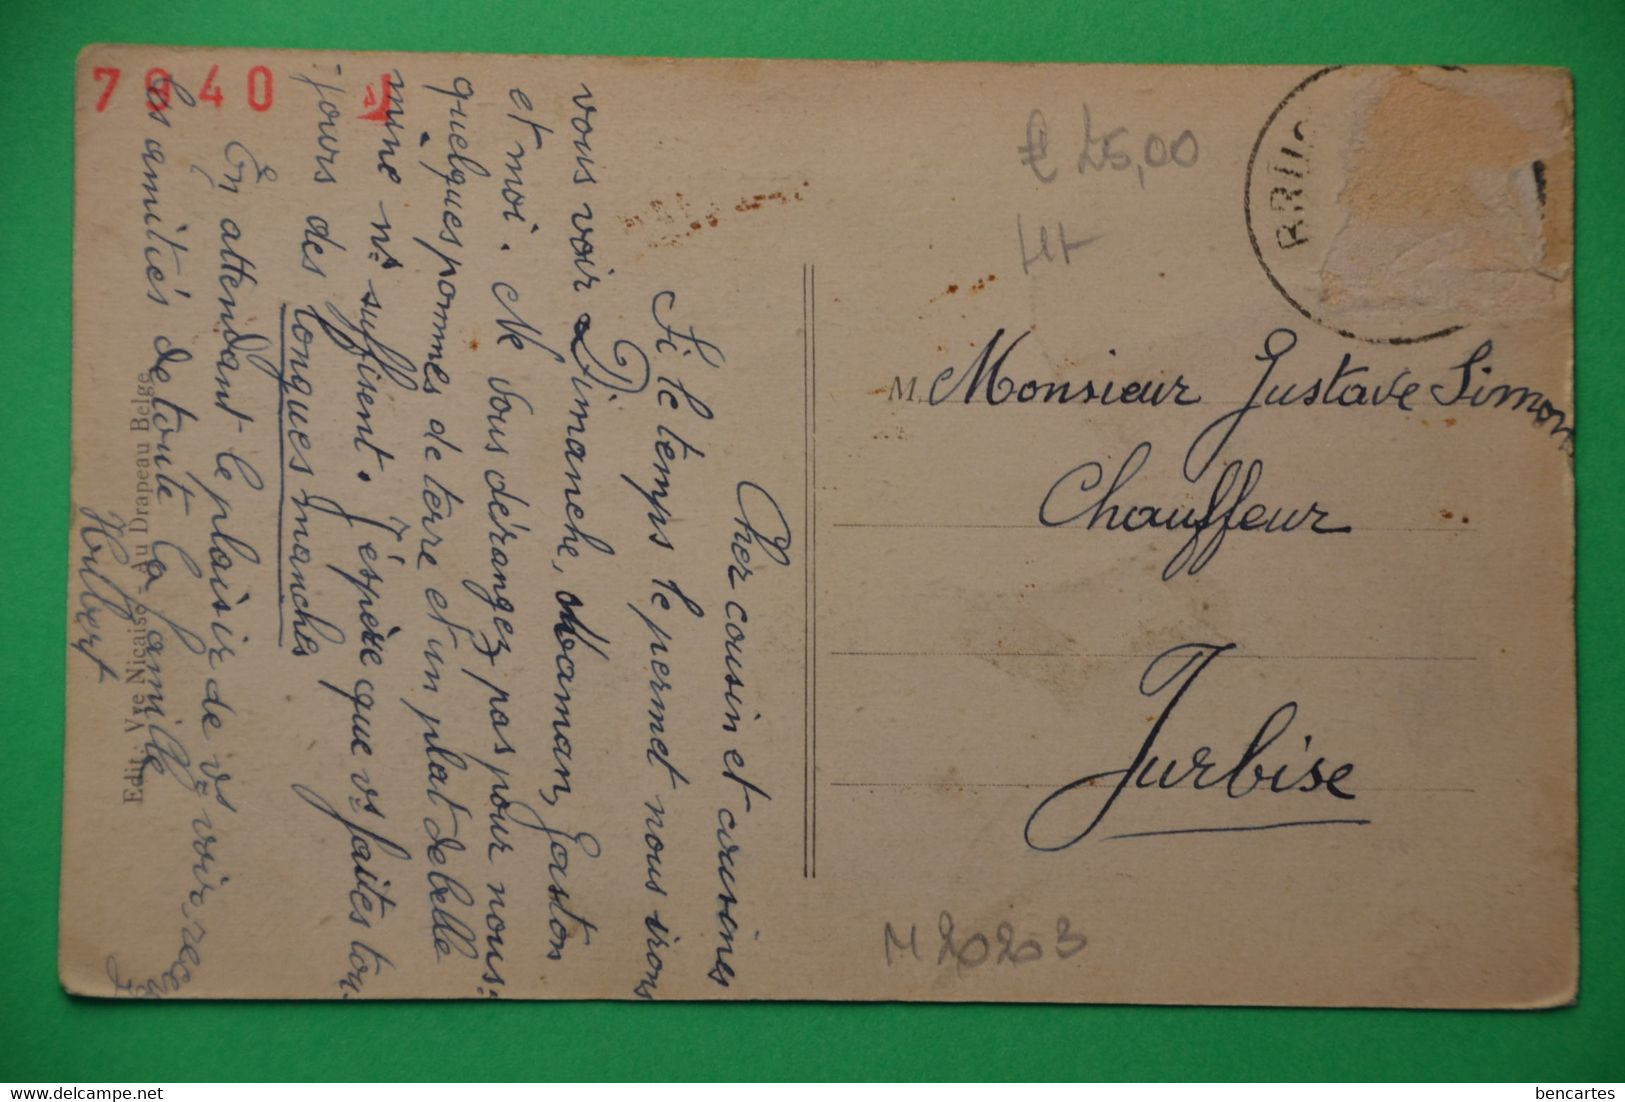 7940
Cher cousin et cousines
Si le temps le permet nous irons
vous voir Dimanche, Maman, Gaston
et moi. Ne vous dérangez pas pour nous:
quelques pommes de terre et un plat de belle
mine ns suffirent. J'espère que vs faites tou-
jours des longues manches
En attendant le plaisir de vs voir, recev
les amitiés de toute la famille
Hulbert
Edit.: Vve Nicaise - Au Drapeau Belge
€ 25,00
Ht
BRU
M. Monsieur Gustave Simon
Chauffeur
Jurbise
M20203
bencartes